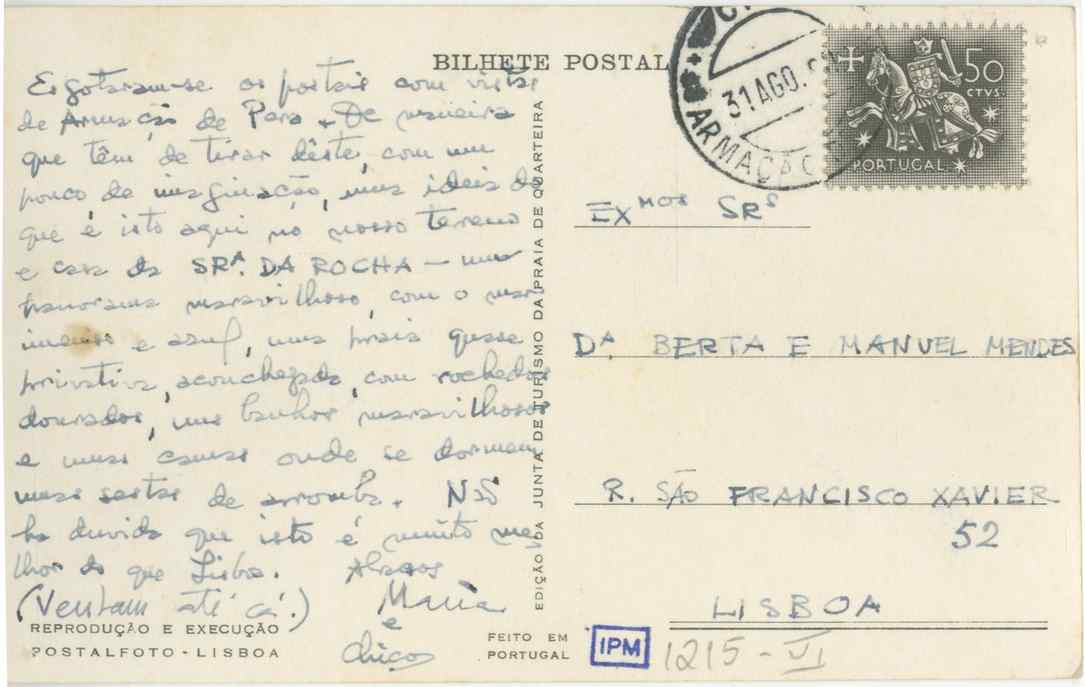 BILHETE POSTAL
Esgotaram-se os postais com vistas
de Armação de Pera. De maneira
que têm de tirar dêste, com um
pouco de imaginação, uma ideia do
que é isto aqui no nosso terreno
e casa da SRA. DA ROCHA — um
panorama maravilhoso, com o mar
imenso e azul, uma praia quase
privativa, aconchegada, com rochedos
dourados, uns banhos maravilhosos
e umas camas onde se dormem
umas sestas de arromba. Não
ha duvida que isto é muito me-
lhor do que Lisboa. Abraços
(Venham até cá!) Maria
e
Chico
REPRODUÇÃO E EXECUÇÃO
POSTALFOTO - LISBOA
FEITO EM
PORTUGAL
EDIÇÃO DA JUNTA DE TURISMO DA PRAIA DE QUARTEIRA
31 AGO.
ARMAÇÃO
50
CTVS.
PORTUGAL
EXMOS SRS
DA. BERTA E MANUEL MENDES
R. SÃO FRANCISCO XAVIER
52
LISBOA
IPM
1215-VI